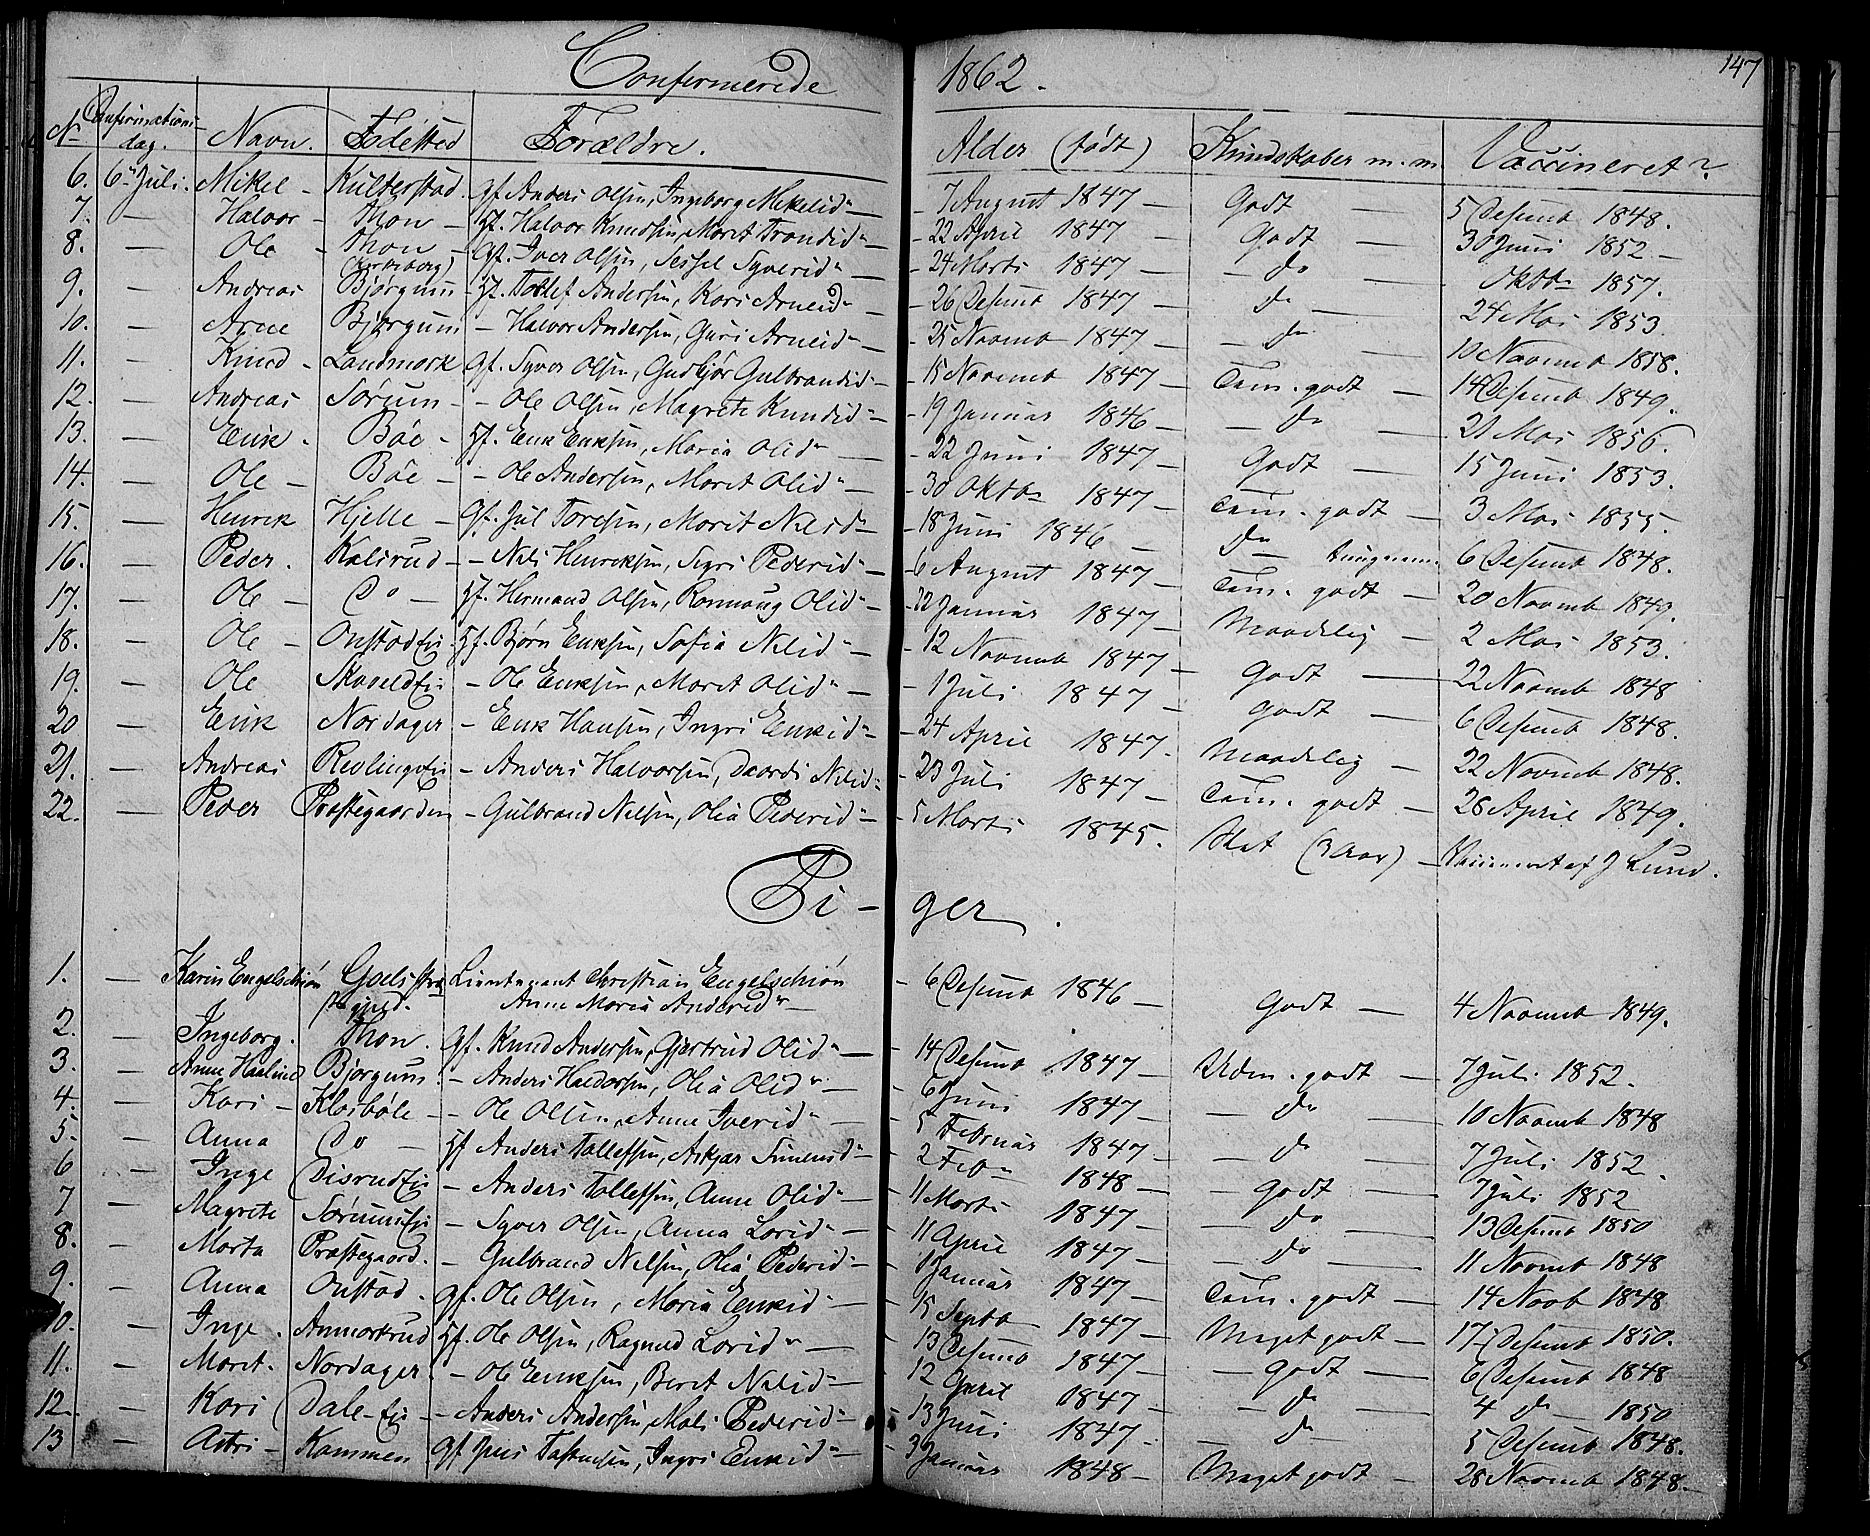 Confirmerede 1862.
147
No Confirmations dag. Navn. Födested Forældre. Alder (födt) Kundskaber m.m. Vaccineret?
6. 6te Juli. Mikel - Kulterstad. Gf. Anders Olsen, Ingeborg Mikelsd. - 7 August 1847 - Godt - 5 Desemb 1848.
7. - Halvor - Thon - Hf. Halvor Knudsen, Marit Trondsd. - 22 April 1847 - Godt - 30 Juni 1852 -
8. - Ole - Thon - Gf. Iver Olsen, Sessel Syversd. - 24 Marts 1847 - do - Oktbr 1857.
9. - Andreas Bjørgum - Hf. Tollef Andersen, Kari Arnesd. - 26 Desemb 1847 - do - 24 Mai 1853.
10. - Arne Bjørgum - Halvor Andersen, Guri Arnesd. - 25 Novemb 1847 - do - 10 Novemb 1858.
11. - Knud - Landmark Gf. Syver Olsen, Gudbjør Gulbrandsd. - 15 Novemb 1847 - Tem. godt - 14 Desemb 1849.
12. - Andreas Sørum - - Ole Olsen, Magrete Knudsd. - 19 Januar 1846 - do - 21 Mai 1856.
13. - Erik - Bøe - Hf. Erik Eriksen, Maria Olsd. - 22 Juni 1847 - Godt - 15 Juni 1853.
14. - Ole - Bøe - - Ole Andersen, Marit Olsd. - 30 Oktbr 1847 - Tem. godt - 3 Mai 1855.
15. - Henrik Hjelle - Gf. Jul Toresen, Marit Nilsd. - 18 Juni 1846 - do - 6 Desemb 1848.
16. - Peder. Kalsrud - - Nils Henriksen, Sigri Pedersd. - 6 August 1847 - Tem. godt - 20 Novemb 1849.
17. - Ole - Do - Hf. Hermand Olsen, Rannaug Olsd. - 22 Januar 1847 - Maadelig - 2 Mai 1853.
18. - Ole - Onstad Ei. Hf. Bjørn Eriksen, Sofia Nilsd. - 12 Novemb 1847 - Godt - 22 Novemb 1848
19. - Ole Ei - Ole Eriksen, Marit Olsd. - 1 Juli 1847 - godt - 6 Desemb 1848.
20 - Erik Nordager - Erik Hansen, Ingri Eriksd. - 24 April 1847. Maadelig - 22 Novemb 1848.
21. - Andreas Ei - Anders Halvorsen, Daardi Nilsd. - 23 Juli 1847 - Tem. godt - 28 April 1849.
22. - Peder Præstegaarden - Gulbrand Nilsen, Olia Pedersd. - 5 Marts 1845. Slet (3 Aar) - Vaccineret af J Lund.
Pi - ger.
1. - Karin Engelschiøn Goels præ Lieutenant Christian Engelschiøn - 6 Desemb 1846 - Godt - 4 Novemb 1849.
gjeld. Anne Maria Andersd. -
2. - Ingeborg. Thon. Gf. Knud Andersen, Gjertrud Olsd. - 14 Desemb 1847 - Udm. godt - 7 Juli 1852.
3. - Anne Bjørgum. - Anders Haldorsen, Olia Olsd. - 6 Juni 1847 - do - 10 Novemb 1848
4. - Kari - Klosbøle - - Ole Olsen, Anne Iversd. - 5 Februar 1847 - do - 7 Juli 1852.
5. - Anna Do - Hf Anders Tollefsen, Askjær Simensd. - 2 Febr 1848 - godt - 7 Juli 1852
6 - Inge Disrud Ei - Anders Tollefsen, Anne Olsd. - 11 Marts 1847 - do - 13 Desemb 1850
7 - Magrete Sørum Ei - Syver Olsen, Anna Larsd. - 11 April 1847 - do - 11 Novemb 1848
8. - Marta Præstegaard. - Gulbrand Nilsen, Olia Pedersd. - 1 Januar 1847 - Tem. godt - 14 Novb 1848
9. - Anna Onstad. Gf. Ole Olsen, Maria Eriksd. - 15 Septb 1847 - Meget godt - 17 Desemb 1850.
10. - Inge. Anmorkrud Hf. Ole Olsen, Ragnild Larsd. - 13 Desemb 1847 - godt - 6 Desemb 1848
11. - Marit. Nordager - Ole Eriksen, Berit Nilsd. - 12 April 1847 - do - 4 do - 1850
12. - Kari Dale - Ei - - Anders Andersen, Mali Pedersd. - 13 Juni 1847 - do - 5 Desemb 1848.
13 - Astri - Kammen Gf Jens Tostensen, Ingri Eriksd. - 3 Januar 1848 - Meget godt - 28 Novemb 1848.-